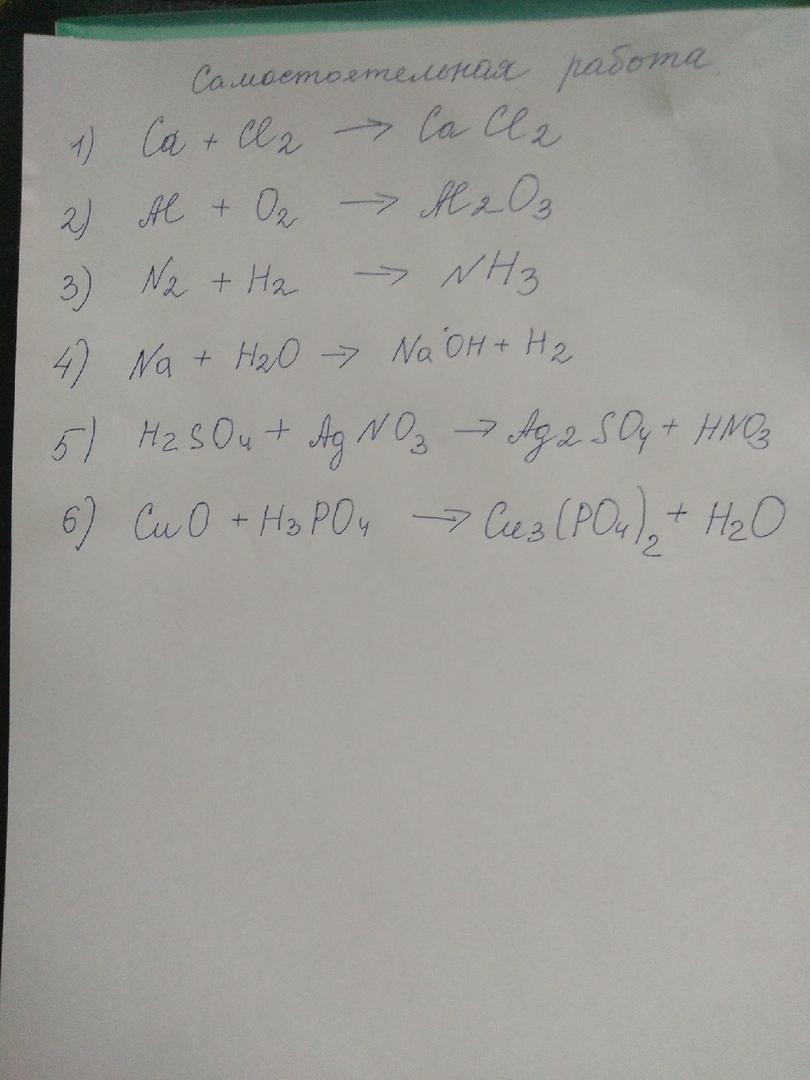 Самостоятельная работа
1) Ca + Cl2 → CaCl2
2) Al + O2 → Al2O3
3) N2 + H2 → NH3
4) Na + H2O → NaOH + H2
5) H2SO4 + AgNO3 → Ag2SO4 + HNO3
6) CuO + H3PO4 → Cu3(PO4)2 + H2O